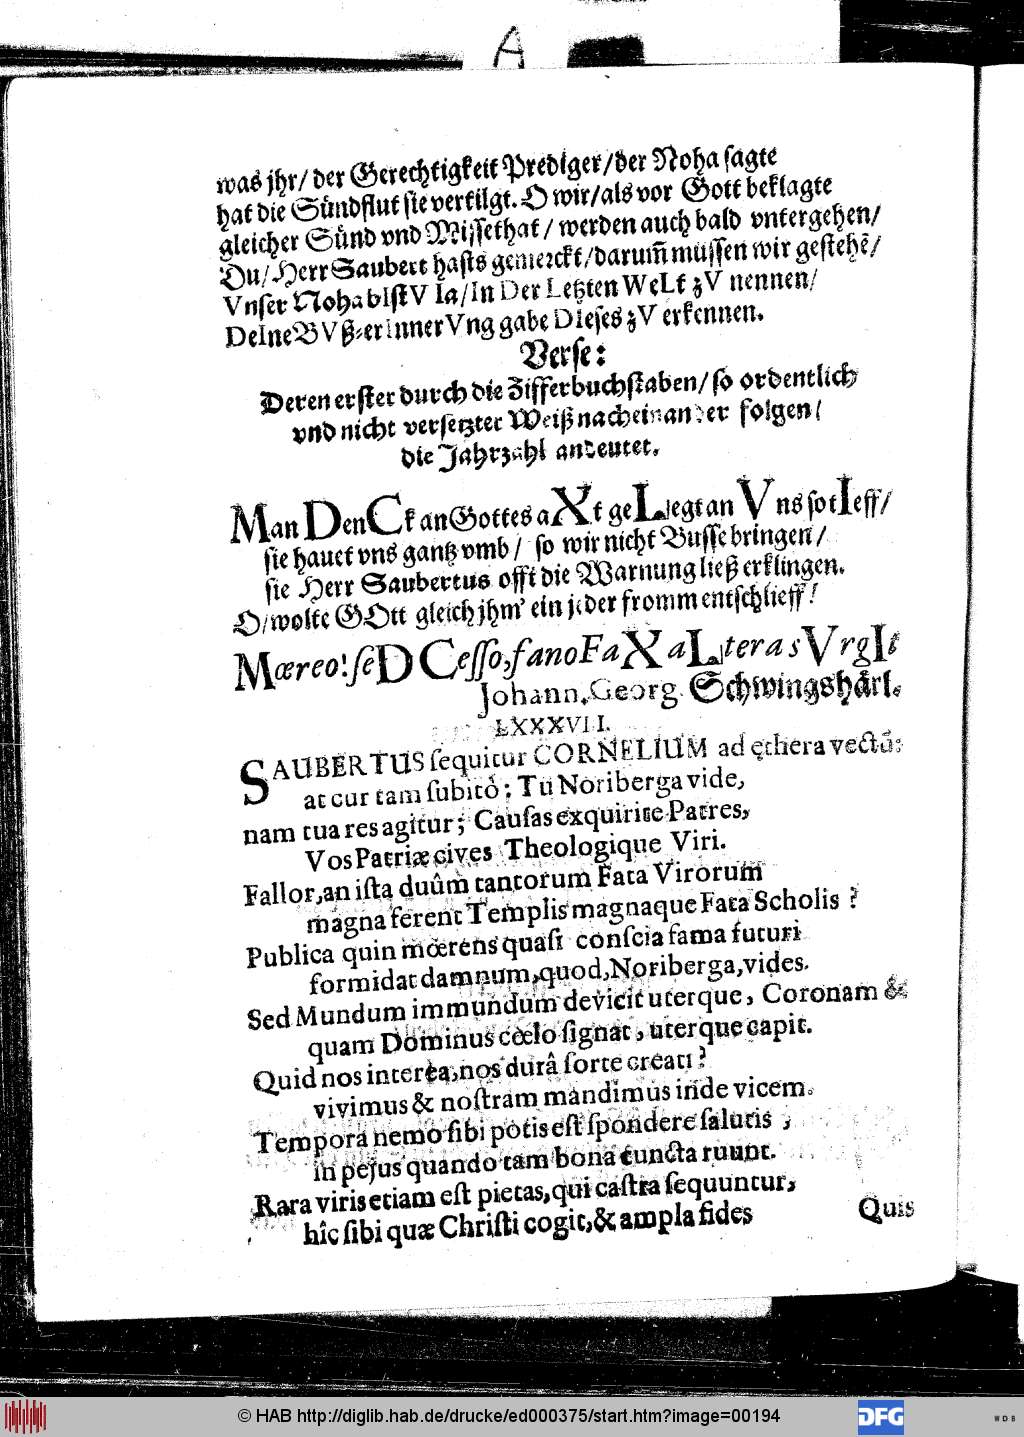 A
was jhr/ der Gerechtigkeit Prediger/der Noha sagte
hat die Sündflut sie vertilgt. O wir/als vor Gott beklagte
gleicher Sünd vnd Missethat/ werden auch bald vntergehen/
Du/ Herr Saubert hasts gemerckt/darum̃ müssen wir gestehẽ/
Vnser Noha bIst V la/In Der Letzten WeLt zV nennen/
DeIneBVß-erInnerVng gabe DIeses zV erkennen.
Verse:
Deren erster durch die Zifferbuchstaben/ so ordentlich
vnd nicht versetzter Weiß nacheinander folgen/
die Jahrzahl andeutet.
Man DenCk an Gottes aXt geLegt an Vns so tIeff/
sie hauet vns gantz vmb/ so wir nicht Busse bringen/
sie Herr Saubertus offt die Warnung ließ erklingen.
O/wolte GOtt gleich jhm' ein jeder fromm entschlieff!
Mœreo! ſeD Ceſſo, ſano FaX aLteras VrgIt
Johann. Georg. Schwingshärl.
LXXXVII.
SAUBERTUS ſequitur CORNELIUM ad ęthera vectũ:
at cur tam ſubitò; Tu Noriberga vide,
nam tua res agitur; Cauſas exquirite Patres,
Vos Patriæ cives Theologique Viri.
Fallor, an iſta duûm tantorum Fata Virorum
magna ferent Templis magnaque Fata Scholis?
Publica quin mœrens quaſi conſcia fama futuri
formidat damnum, quod, Noriberga, vides.
Sed Mundum immundum devicit uterque, Coronam &
quam Dominus cœlo ſignat, uterque capit.
Quid nos interea, nos durâ ſorte creati?
vivimus & noſtram mandimus inde vicem.
Tempora nemo ſibi potis eſt ſpondere ſalutis,
in pejus quando tam bona cuncta ruunt.
Rara viris etiam eſt pietas, qui caſtra ſequuntur,
hîc ſibi quæ Chriſti cogit, & ampla fides
Quis
© HAB http://diglib.hab.de/drucke/ed000375/start.htm?image=00194
DFG
WDB